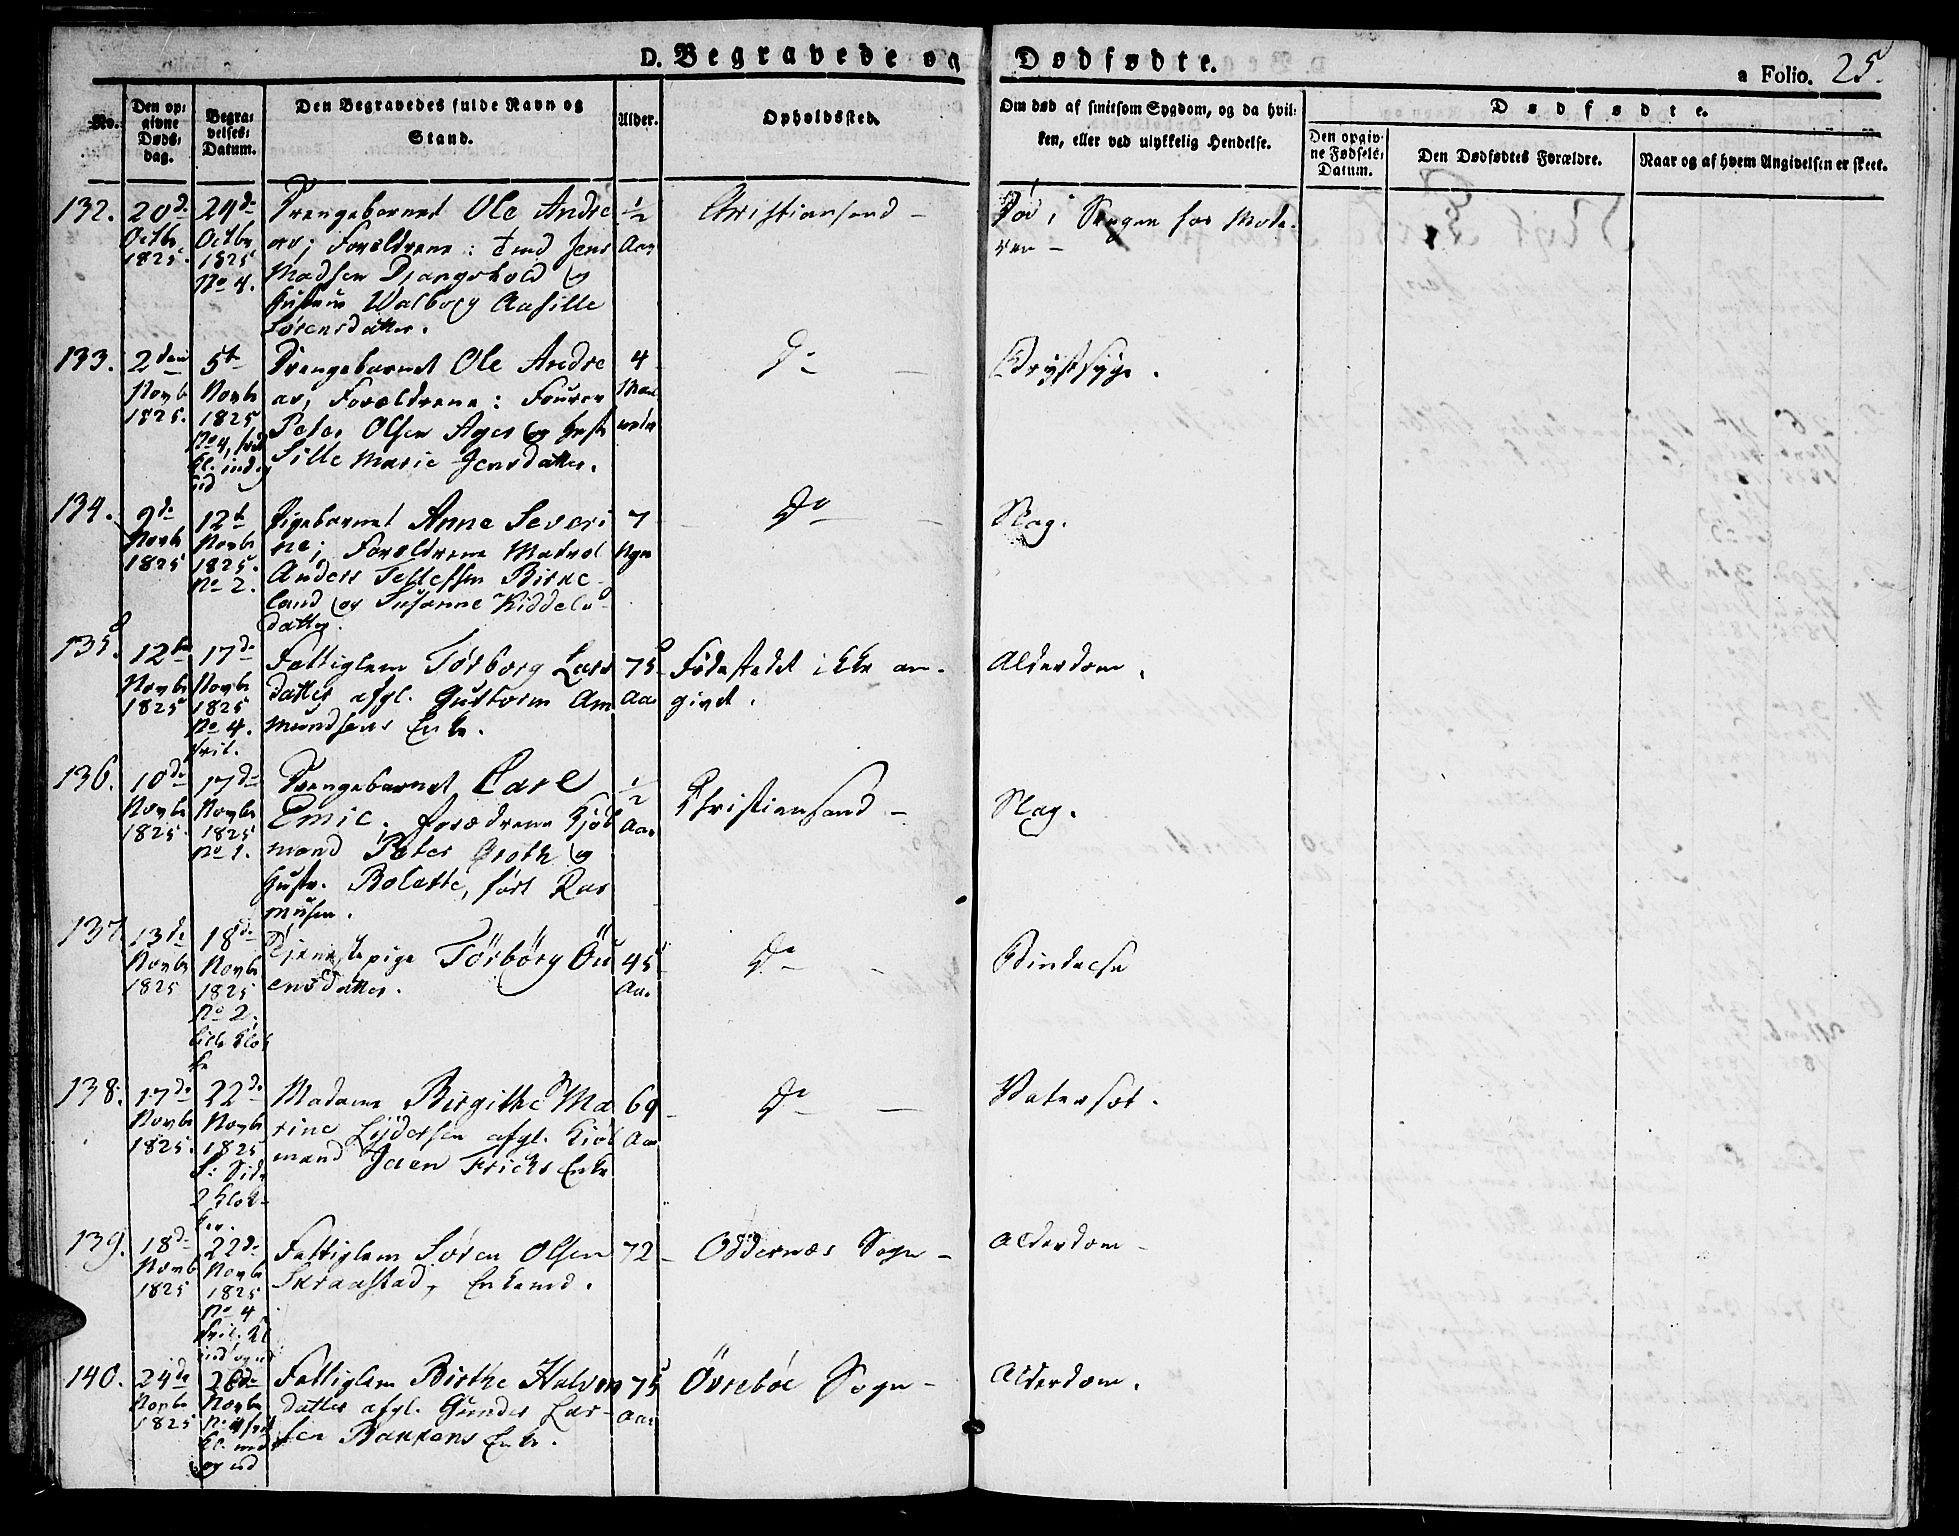 D. Begravede og Dødfødte.
a Folio. 25.
No.
Den op-
givne
Døds-
dag.
Begra-
velses-
Datum.
Den Begravedes fulde Navn og
Stand.
Alder.
Opholdssted.
Om død af smitsom Sygdom, og da hvil-
ken, eller ved ulykkelig Hendelse.
Dødfødte.
Den opgiv-
ne Fødsels-
Datum.
Den Dødfødtes Forældre.
Naar og af hvem Angivelsen er skeet.
132.
20de
Octbr
1825.
24de
Octbr
1825
No 4.
Drengebarnet Ole Andre
as; Forældrene: Jens
Madsen og
Hustrue Walborg
Sørensdatter.
1/2
Aar
Christiansand –
Død i Sengen hos Mode-
ren –
133.
2den
Novb
1825.
5te
Novb
1825
No 4,
Drengebarnet Ole Andre
as, Forældrene: Fourer
Peter Olsen Ager og Hust
Sille Marie Jensdatter.
4
Maa
neder
Do –
Brystsyge.
134.
9de
Novb
1825
12te
Novb
1825.
No 2.
Pigebarnet Anne Severi
ne; Forældrene Matros
Anders Tellefsen Birke-
land og Susanne Kiddels-
datter.
7
Uger
Do –
Slag.
135.
12te
Novbr
1825
17de
Novbr
1825
No 4.
frit.
Fattiglem Torborg Lars
datter, afgl. Guttorm Am
mundsens Enke.
75
Aar
Fødestedet ikke an-
givet.
Alderdom.
136.
10de
Novbr
1825.
17de
Novbr
1825
No 1.
Drengebarnet Carl
Emic. Forældrene Kjøb
mand Peter Groth og
Hustr. Bolette, født Ras
musen.
1/2
Aar
Christiansand –
Slag.
137.
13de
Novbr
1825
18de
Novbr
1825
No 2.
Tjenestepige Torborg Ou
ensdatter.
45
Aar
Do –
138.
17de
Novbr
1825.
22de
Novbr
1825
2 Klok-
ker.
Madame Birgithe Ma
rine Lydersen afgl. Kiøb
mand Joen Fricks Enke
69
Aar
Do –
Vatersot.
139.
18de
Novb
1825
22de
Novbr
1825
No 4
Fattiglem Søren Olsen
Skraastad, Enkemd.
72
Oddernæs Sogn –
Alderdom –
140.
24de
Novbr
1825
28de
Novbr
No 4 frit
Kl. ind
og ud
Fattiglem Birthe Halvor
datter afgl. Gunder Lar-
sen Bakkens Enke.
75
Aar
Øvrebøe Sogn –
Alderdom.